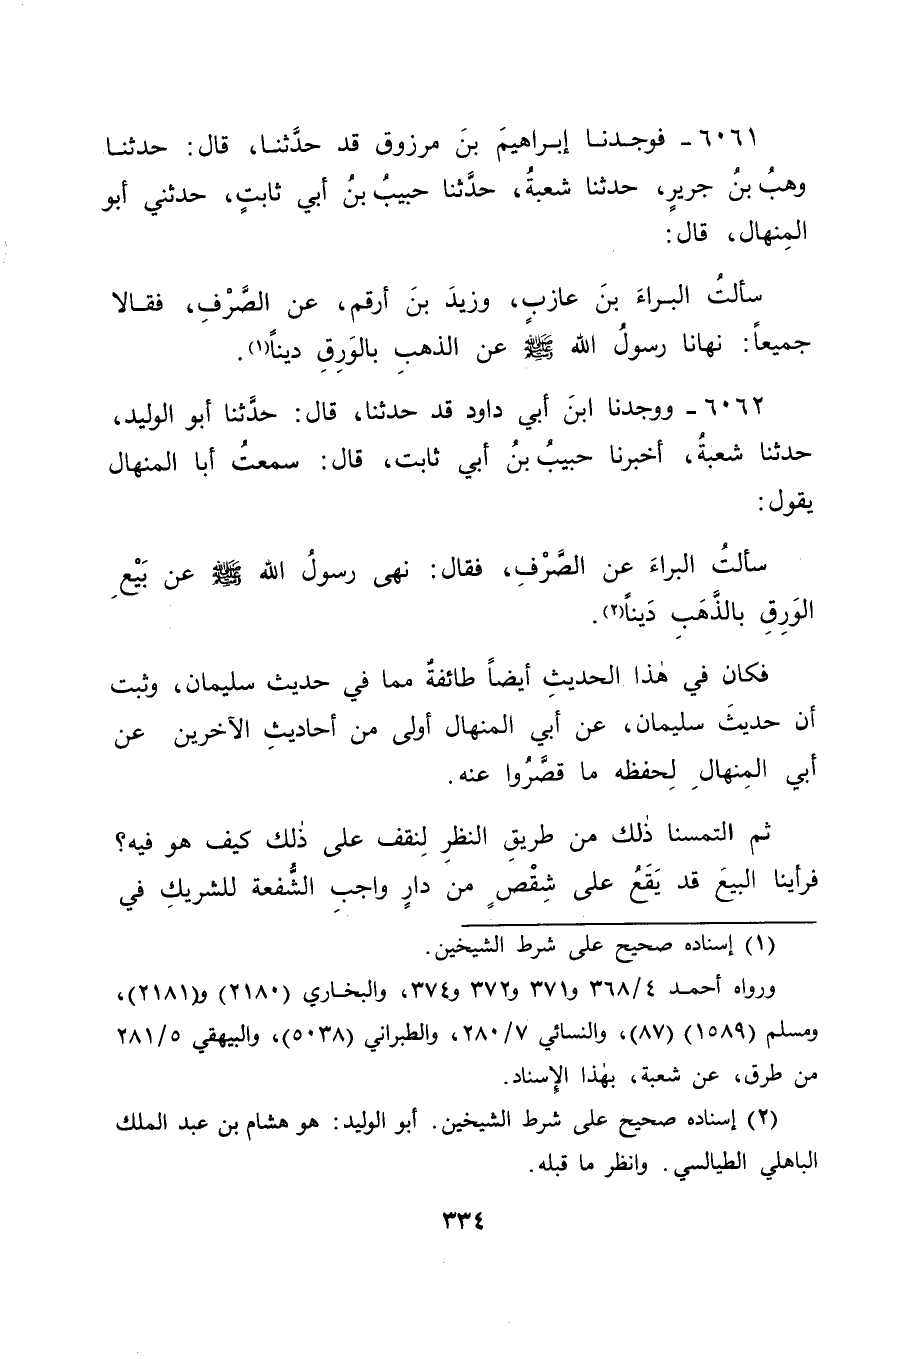 ٦٠٦١ - فوجدنا إبراهيمَ بنَ مرزوق قد حدَّثنا، قال: حدثنا
وهبُ بنُ جريرٍ، حدثنا شعبةُ، حدَّثنا حبيبُ بنُ أبي ثابتٍ، حدثني أبو
المِنهال، قال:
سألتُ البراءَ بنَ عازبٍ، وزيدَ بنَ أرقم، عن الصَّرْفِ، فقالا
جميعاً: نهانا رسولُ الله ﷺ عن الذهبِ بالوَرِقِ ديناً(١).
٦٠٦٢ - ووجدنا ابنَ أبي داود قد حدثنا، قال: حدَّثنا أبو الوليد،
حدثنا شعبةُ، أخبرنا حبيبُ بنُ أبي ثابت، قال: سمعتُ أبا المنهال
يقول:
سألتُ البراءَ عن الصَّرْفِ، فقال: نهى رسولُ الله ﷺ عن بَيْعِ
الوَرِقِ بالذَّهَبِ دَيناً(٢).
فكان في هٰذا الحديثِ أيضاً طائفةٌ مما في حديث سليمان، وثبت
أن حديثَ سليمان، عن أبي المنهال أولى من أحاديثِ الآخرين عن
أبي المِنهالِ لِحفظه ما قصَّرُوا عنه.
ثم التمسنا ذٰلك من طريقِ النظرِ لِنقف على ذٰلك كيف هو فيه؟
فرأينا البيعَ قد يَقَعُ على شِقْصٍ من دارٍ واجبِ الشُّفعة للشريكِ في
(١) إسناده صحيح على شرط الشيخين.
ورواه أحمد ٣٦٨/٤ و٣٧١ و٣٧٢ و٣٧٤، والبخاري (٢١٨٠) و(٢١٨١)،
ومسلم (١٥٨٩) (٨٧)، والنسائي ٢٨٠/٧، والطبراني (٥٠٣٨)، والبيهقي ٢٨١/٥
من طرق، عن شعبة، بهٰذا الإسناد.
(٢) إسناده صحيح على شرط الشيخين. أبو الوليد: هو هشام بن عبد الملك
الباهلي الطيالسي. وانظر ما قبله.
٣٣٤